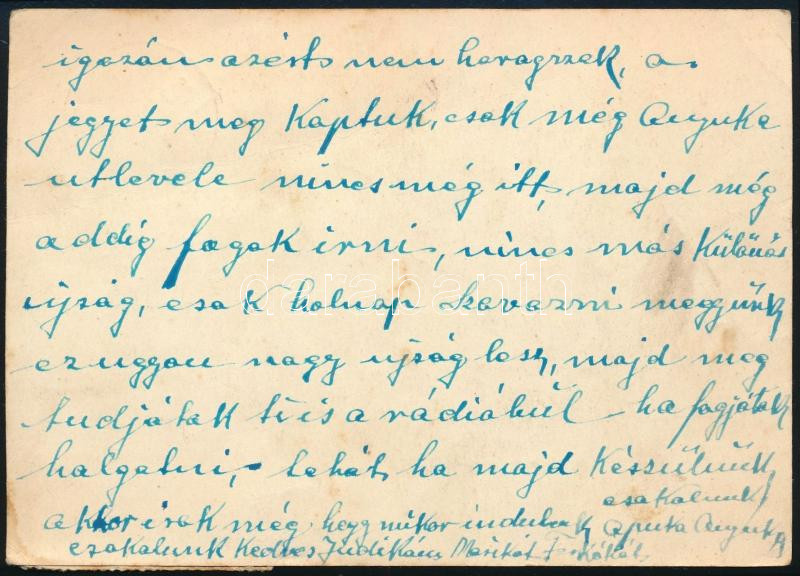 igazán azért nem haragszek, a
jegyet meg Kaptuk, csak még Anyuka
utlevele nincs még itt, majd még
addig fogok irni, nincs más Különös
ujság, csak holnap szavazni meggyünk
ez uggan nagy ujság lesz, majd meg
tudjátok ti is a rádiábúl ha fogjátok
halgatni, tehát ha majd Készülünk
akkor irok még hogy mikor indulunk
csakalunk
apuka Anyuka
csakalunk Kedves Judikánk Marikát
darabanth